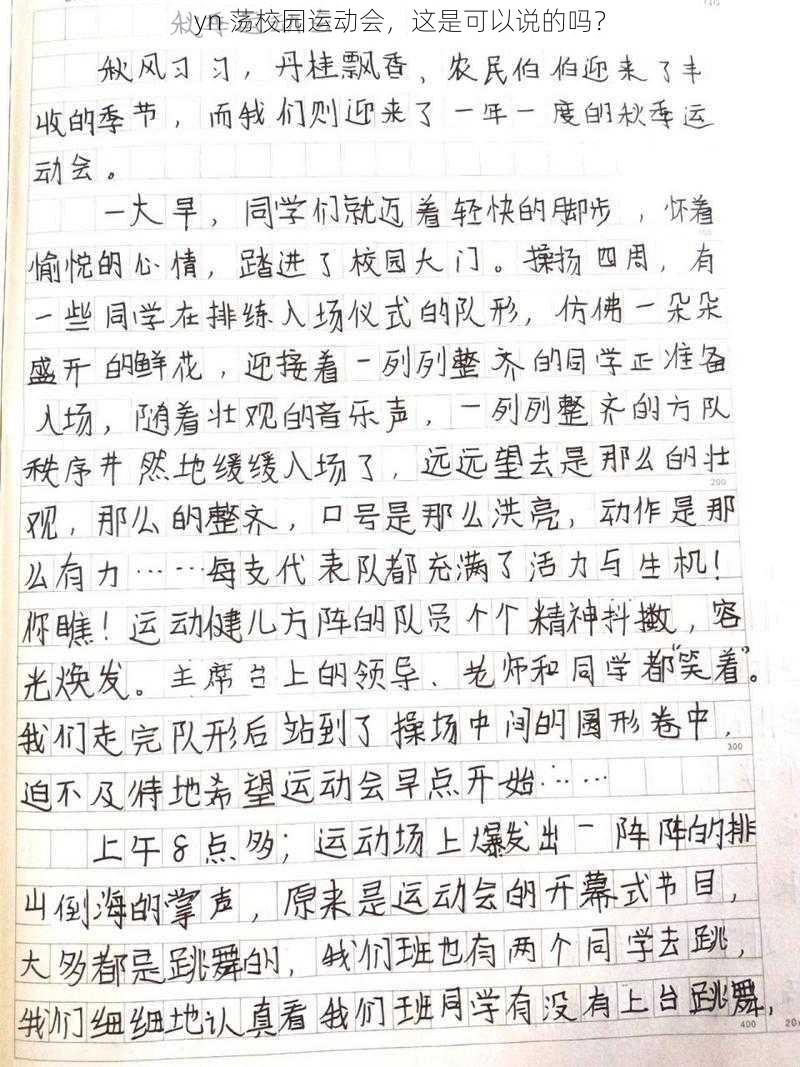 yn 荡校园运动会，这是可以说的吗？
秋风习习，丹桂飘香、农民伯伯迎来了丰
收的季节，而我们则迎来了一年一度的秋季运
动会。
一大早，同学们就迈着轻快的脚步，怀着
愉悦的心情，踏进了校园大门。操扬四周，有
一些同学在排练入场仪式的队形，仿佛一朵朵
盛开的鲜花，迎接着一列列整齐的同学正准备
入场，随着壮观的音乐声，一列列整齐的方队
秩序井然地缓缓入场了，远远望去是那么的壮
观，那么的整齐，口号是那么洪亮，动作是那
么有力……每支代表队都充满了活力与生机！
你瞧！运动健儿方阵的队员个个精神抖擞，容
光焕发。主席台上的领导、老师和同学都“笑着”。
我们走完队形后站到了操场中间的圆形卷中，
迫不及待地希望运动会早点开始……
上午8点多；运动场上爆发出一阵阵的排
山倒海的掌声，原来是运动会的开幕式节目，
大多都是跳舞的，我们班也有两个同学去跳，
我们细细地认真看我们班同学有没有上台跳舞，
200
300
400